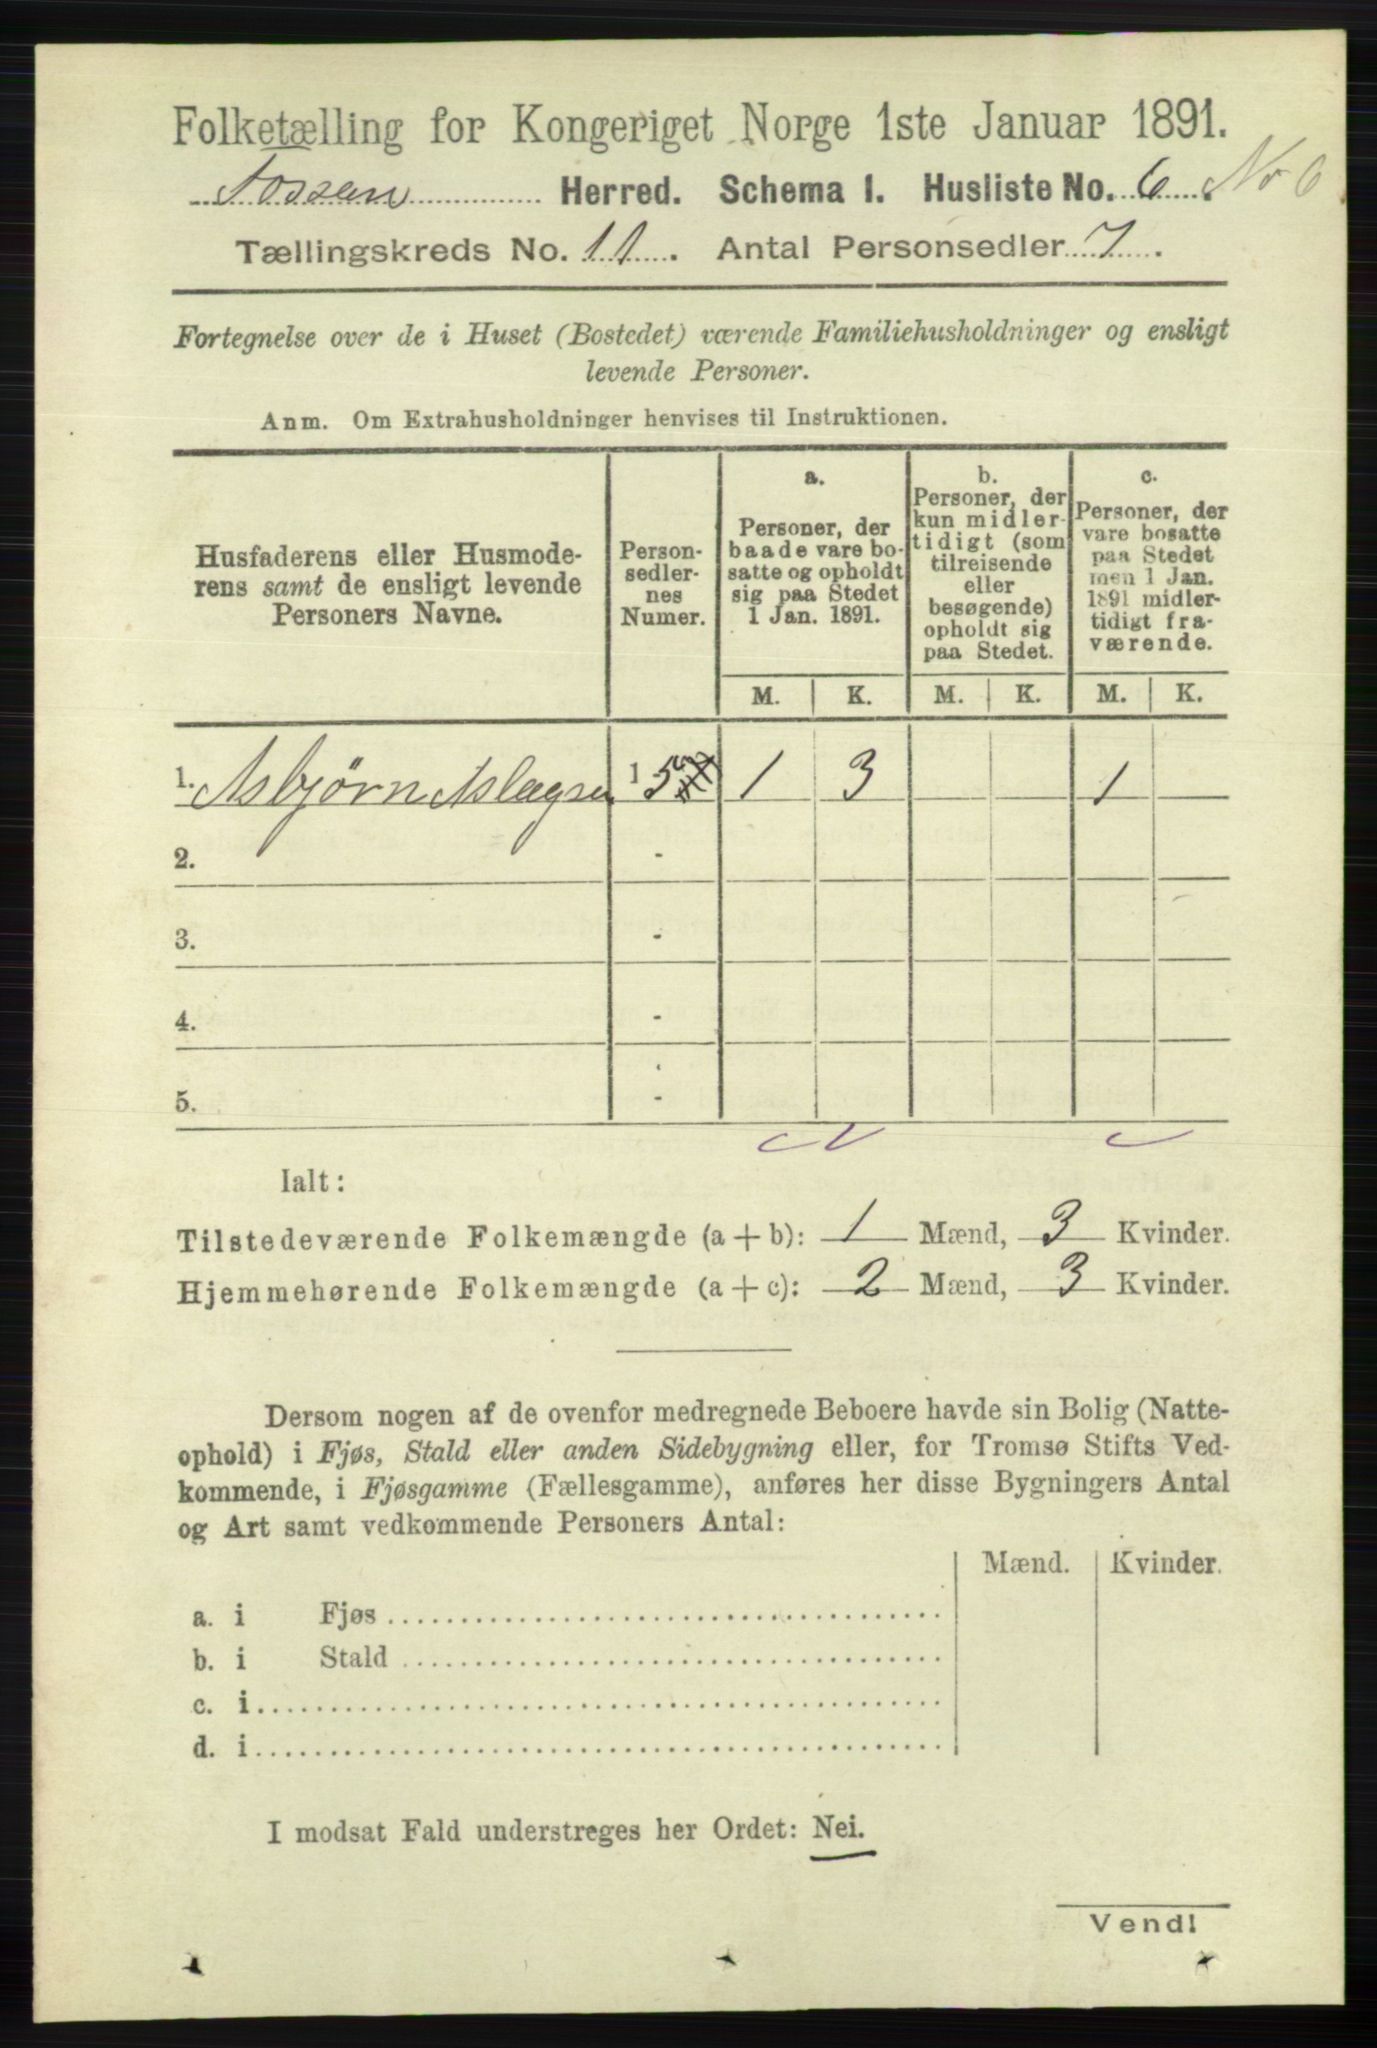 Folketælling for Kongeriget Norge 1ste Januar 1891.
Fossan Herred. Schema 1. Husliste No. 6. No 6
Tællingskreds No. 11. Antal Personsedler 7.
Fortegnelse over de i Huset (Bostedet) værende Familiehusholdninger og ensligt
levende Personer.
Anm. Om Extrahusholdninger henvises til Instruktionen.
Husfaderens eller Husmode-
rens samt de ensligt levende
Personers Navne.
Person-
sedler-
nes
Numer.
a.
Personer, der
baade vare bo-
satte og opholdt
sig paa Stedet
1 Jan. 1891.
b.
Personer, der
kun midler-
tidigt (som
tilreisende
eller
besøgende)
opholdt sig
paa Stedet.
c.
Personer, der
vare bosatte
paa Stedet
men 1 Jan.
1891 midler-
tidigt fra-
værende.
M. K. M. K. M. K.
1. Asbjørn Aslagsen 1 5 1 3 1
2. -
3. -
4. -
5. -
Ialt:
Tilstedeværende Folkemængde (a + b): 1 Mænd, 3 Kvinder.
Hjemmehørende Folkemængde (a + c): 2 Mænd, 3 Kvinder.
Dersom nogen af de ovenfor medregnede Beboere havde sin Bolig (Natte-
ophold) i Fjøs, Stald eller anden Sidebygning eller, for Tromsø Stifts Ved-
kommende, i Fjøsgamme (Fællesgamme), anføres her disse Bygningers Antal
og Art samt vedkommende Personers Antal:
Mænd. Kvinder.
a. i Fjøs
b. i Stald
c. i
d. i
I modsat Fald understreges her Ordet: Nei.
Vend!